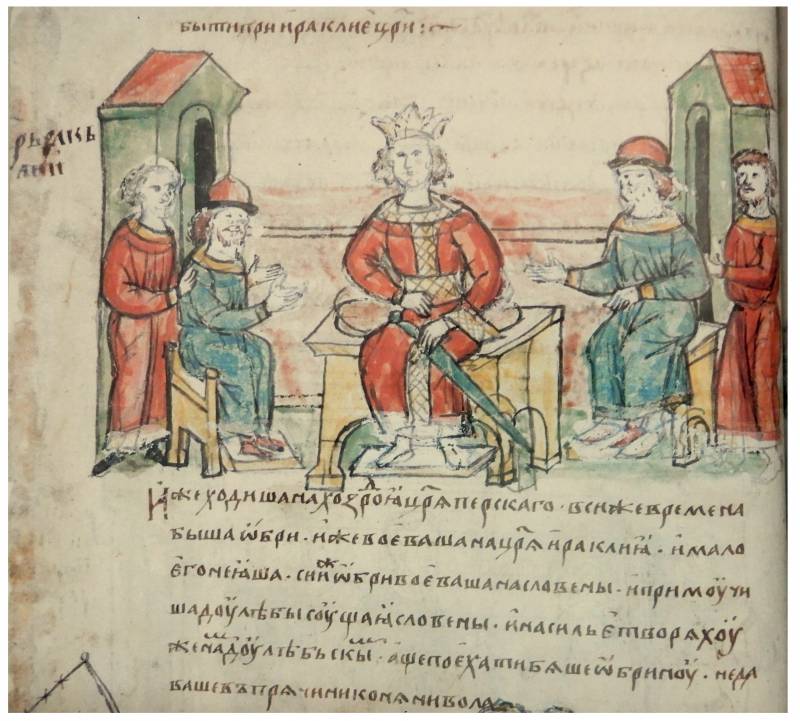 быти при ираклие ц҃ри :~
иже ходиша на хоздроꙗ ц҃рѧ перскаго · в си же времена
быша ѡбри · иже воеваша на ц҃рѧ ираклиꙗ · и мало
его не ꙗша · сиⷤи ѡбри воеваша на словены · и примоучи
ша доулѣбы соущаꙗ словены · и насилье творѧхоу
женамъ доулѣбьскымъ · аще поехати бѧше ѡбримоу · не да
ваше въпрѧчи ни конѧ ни вола